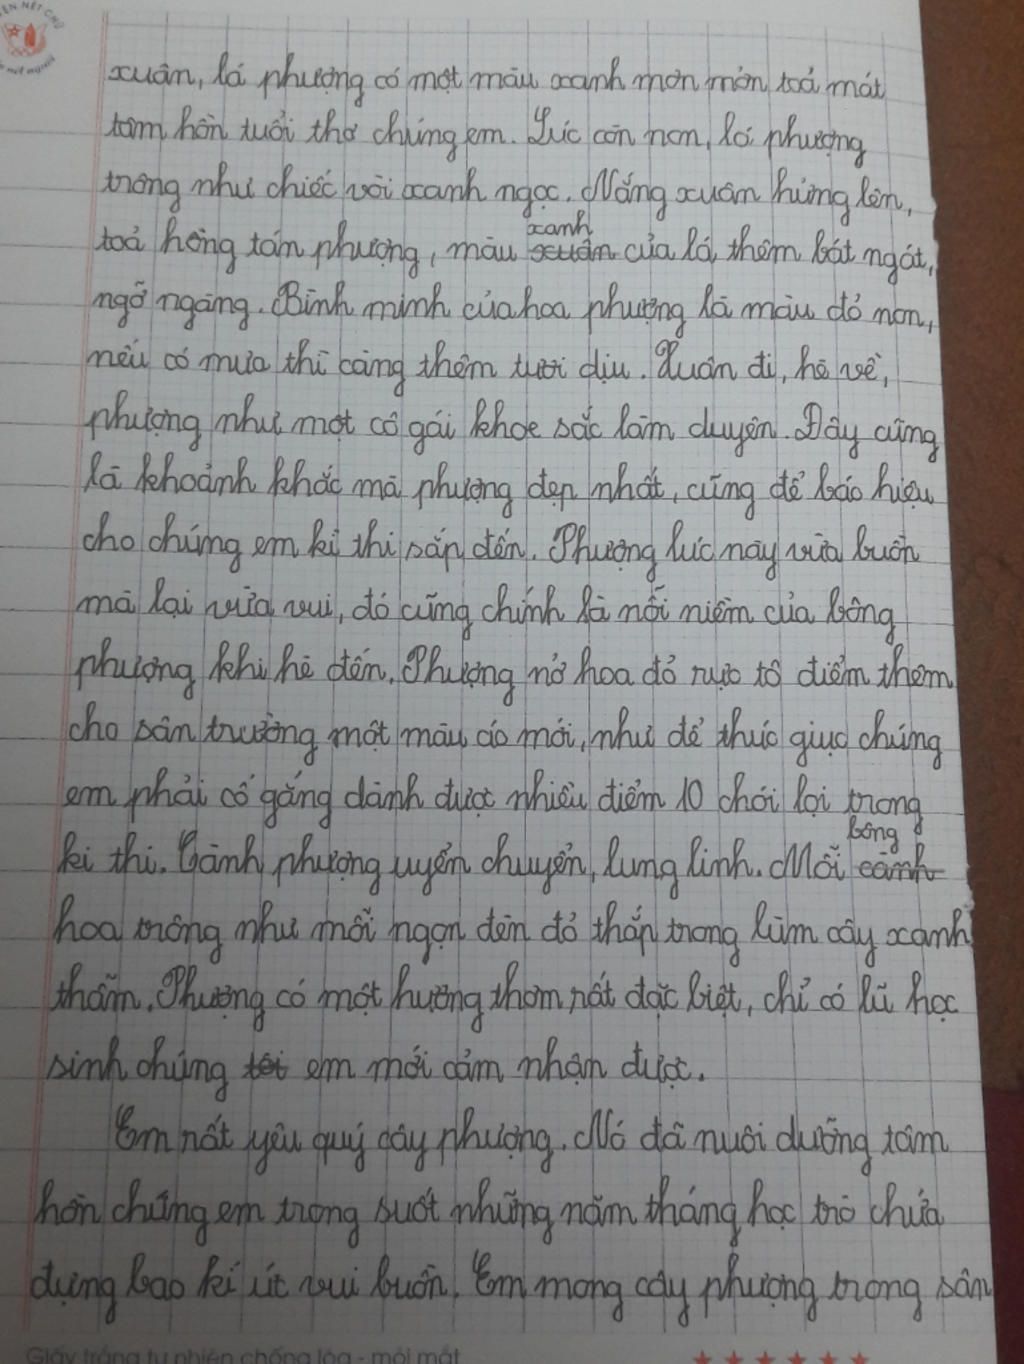 xuân, lá phượng có một màu xanh mơn mởn toả mát
tâm hồn tuổi thơ chúng em. Lúc còn non, lá phượng
trông như chiếc vòi xanh ngọc. Nắng xuân hửng lên,
toả hồng tán phượng, màu xanh của lá thêm bát ngát,
ngỡ ngàng. Bình minh của hoa phượng là màu đỏ non,
nếu có mưa thì càng thêm tươi dịu. Xuân đi, hè về,
phượng như một cô gái khoe sắc làm duyên. Đây cũng
là khoảnh khắc mà phượng đẹp nhất, cũng để báo hiệu
cho chúng em kì thi sắp đến. Phượng lúc này vừa buồn
mà lại vừa vui, đó cũng chính là nỗi niềm của bông
phượng khi hè đến. Phượng nở hoa đỏ rực tô điểm thêm
cho sân trường một màu áo mới, như để thúc giục chúng
em phải cố gắng dành được nhiều điểm 10 chói lọi trong
kì thi. Cành phượng uyển chuyển, lung linh. Mỗi bông
hoa trông như mỗi ngọn đèn đỏ thắp trong lùm cây xanh
thẫm. Phượng có một hương thơm rất đặc biệt, chỉ có lũ học
sinh chúng em mới cảm nhận được.
Em rất yêu quý cây phượng. Nó đã nuôi dưỡng tâm
hồn chúng em trong suốt những năm tháng học trò chứa
đựng bao kí ức vui buồn. Em mong cây phượng trong sân
Giấy trắng tự nhiên chống lóa - mỏi mắt